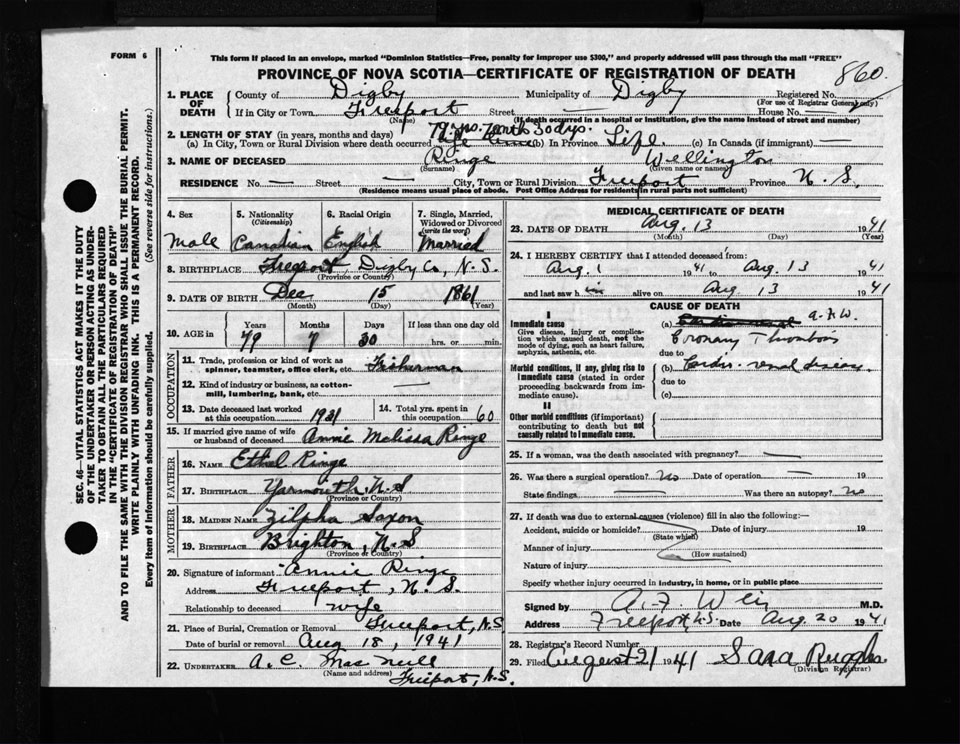 FORM 6
This form if placed in an envelope, marked "Dominion Statistics—Free, penalty for improper use $300," and properly addressed will pass through the mail "FREE"
PROVINCE OF NOVA SCOTIA—CERTIFICATE OF REGISTRATION OF DEATH 860
1. PLACE OF DEATH County of Digby Municipality of Digby Registered No.
(For use of Registrar General only)
If in City or Town Freeport Street — House No. —
(Name) (If death occurred in a hospital or institution, give the name instead of street and number)
79 yrs. 7 mths 30 dys.
2. LENGTH OF STAY (in years, months and days)
(a) In City, Town or Rural Division where death occurred (b) In Province Life. (c) In Canada (if immigrant) —
3. NAME OF DECEASED Ringe Wellington
(Surname) (Given name or names)
RESIDENCE No. — Street — City, Town or Rural Division Freeport Province N. S.
(Residence means usual place of abode. Post Office Address for residents in rural parts not sufficient)
4. Sex Male
5. Nationality (Citizenship) Canadian
6. Racial Origin English
7. Single, Married, Widowed or Divorced (write the word) Married
8. BIRTHPLACE Freeport, Digby Co, N. S.
(Province or Country)
9. DATE OF BIRTH Dec 15 1861
(Month) (Day) (Year)
10. AGE in Years 79 Months 7 Days 30 If less than one day old hrs. or min.
OCCUPATION
11. Trade, profession or kind of work as spinner, teamster, office clerk, etc. Fisherman
12. Kind of industry or business, as cotton-mill, lumbering, bank, etc. —
13. Date deceased last worked at this occupation 1931
14. Total yrs. spent in this occupation 60
15. If married give name of wife or husband of deceased Annie Melissa Ringe
FATHER
16. NAME Ethel Ringe
17. BIRTHPLACE Yarmouth N.S
(Province or Country)
MOTHER
18. MAIDEN NAME Zilpha Saxon
19. BIRTHPLACE Brighton, N.S
(Province or Country)
20. Signature of informant Annie Ringe
Address Freeport, N. S.
Relationship to deceased wife
21. Place of Burial, Cremation or Removal Freeport, N.S
Date of burial or removal Aug 18, 1941
22. UNDERTAKER A. C. Mac Neill
(Name and address) Freeport, N.S.
MEDICAL CERTIFICATE OF DEATH
23. DATE OF DEATH Aug. 13 1941
(Month) (Day) (Year)
24. I HEREBY CERTIFY that I attended deceased from:
Aug. 1 1941 to Aug 13 1941
and last saw him alive on Aug 13 1941
CAUSE OF DEATH
I
Immediate cause
Give disease, injury or complication which caused death, not the mode of dying, such as heart failure, asphyxia, asthenia, etc.
(a) A.F.W.
Coronary Thrombosis
due to
Morbid conditions, if any, giving rise to immediate cause (stated in order proceeding backwards from immediate cause).
(b) Cardio-renal disease.
due to
(c)
II
Other morbid conditions (if important) contributing to death but not causally related to immediate cause.
25. If a woman, was the death associated with pregnancy? —
26. Was there a surgical operation? no Date of operation — 19
State findings — Was there an autopsy? no
27. If death was due to external causes (violence) fill in also the following:—
Accident, suicide or homicide? Date of injury 19
(State which)
Manner of injury
(How sustained)
Nature of injury
Specify whether injury occurred in industry, in home, or in public place
Signed by A. F. Weir M.D.
Address Freeport, N.S. Date Aug 20 1941
28. Registrar's Record Number
29. Filed August 21 1941 Sara Ruggles
(Division Registrar)
SEC. 46—VITAL STATISTICS ACT MAKES IT THE DUTY
OF THE UNDERTAKER OR PERSON ACTING AS UNDER-
TAKER TO OBTAIN ALL THE PARTICULARS REQUIRED
IN THE "CERTIFICATE OF REGISTRATION OF DEATH"
AND TO FILE THE SAME WITH THE DIVISION REGISTRAR WHO SHALL ISSUE THE BURIAL PERMIT.
WRITE PLAINLY WITH UNFADING INK. THIS IS A PERMANENT RECORD.
Every item of information should be carefully supplied. (See reverse side for instructions.)